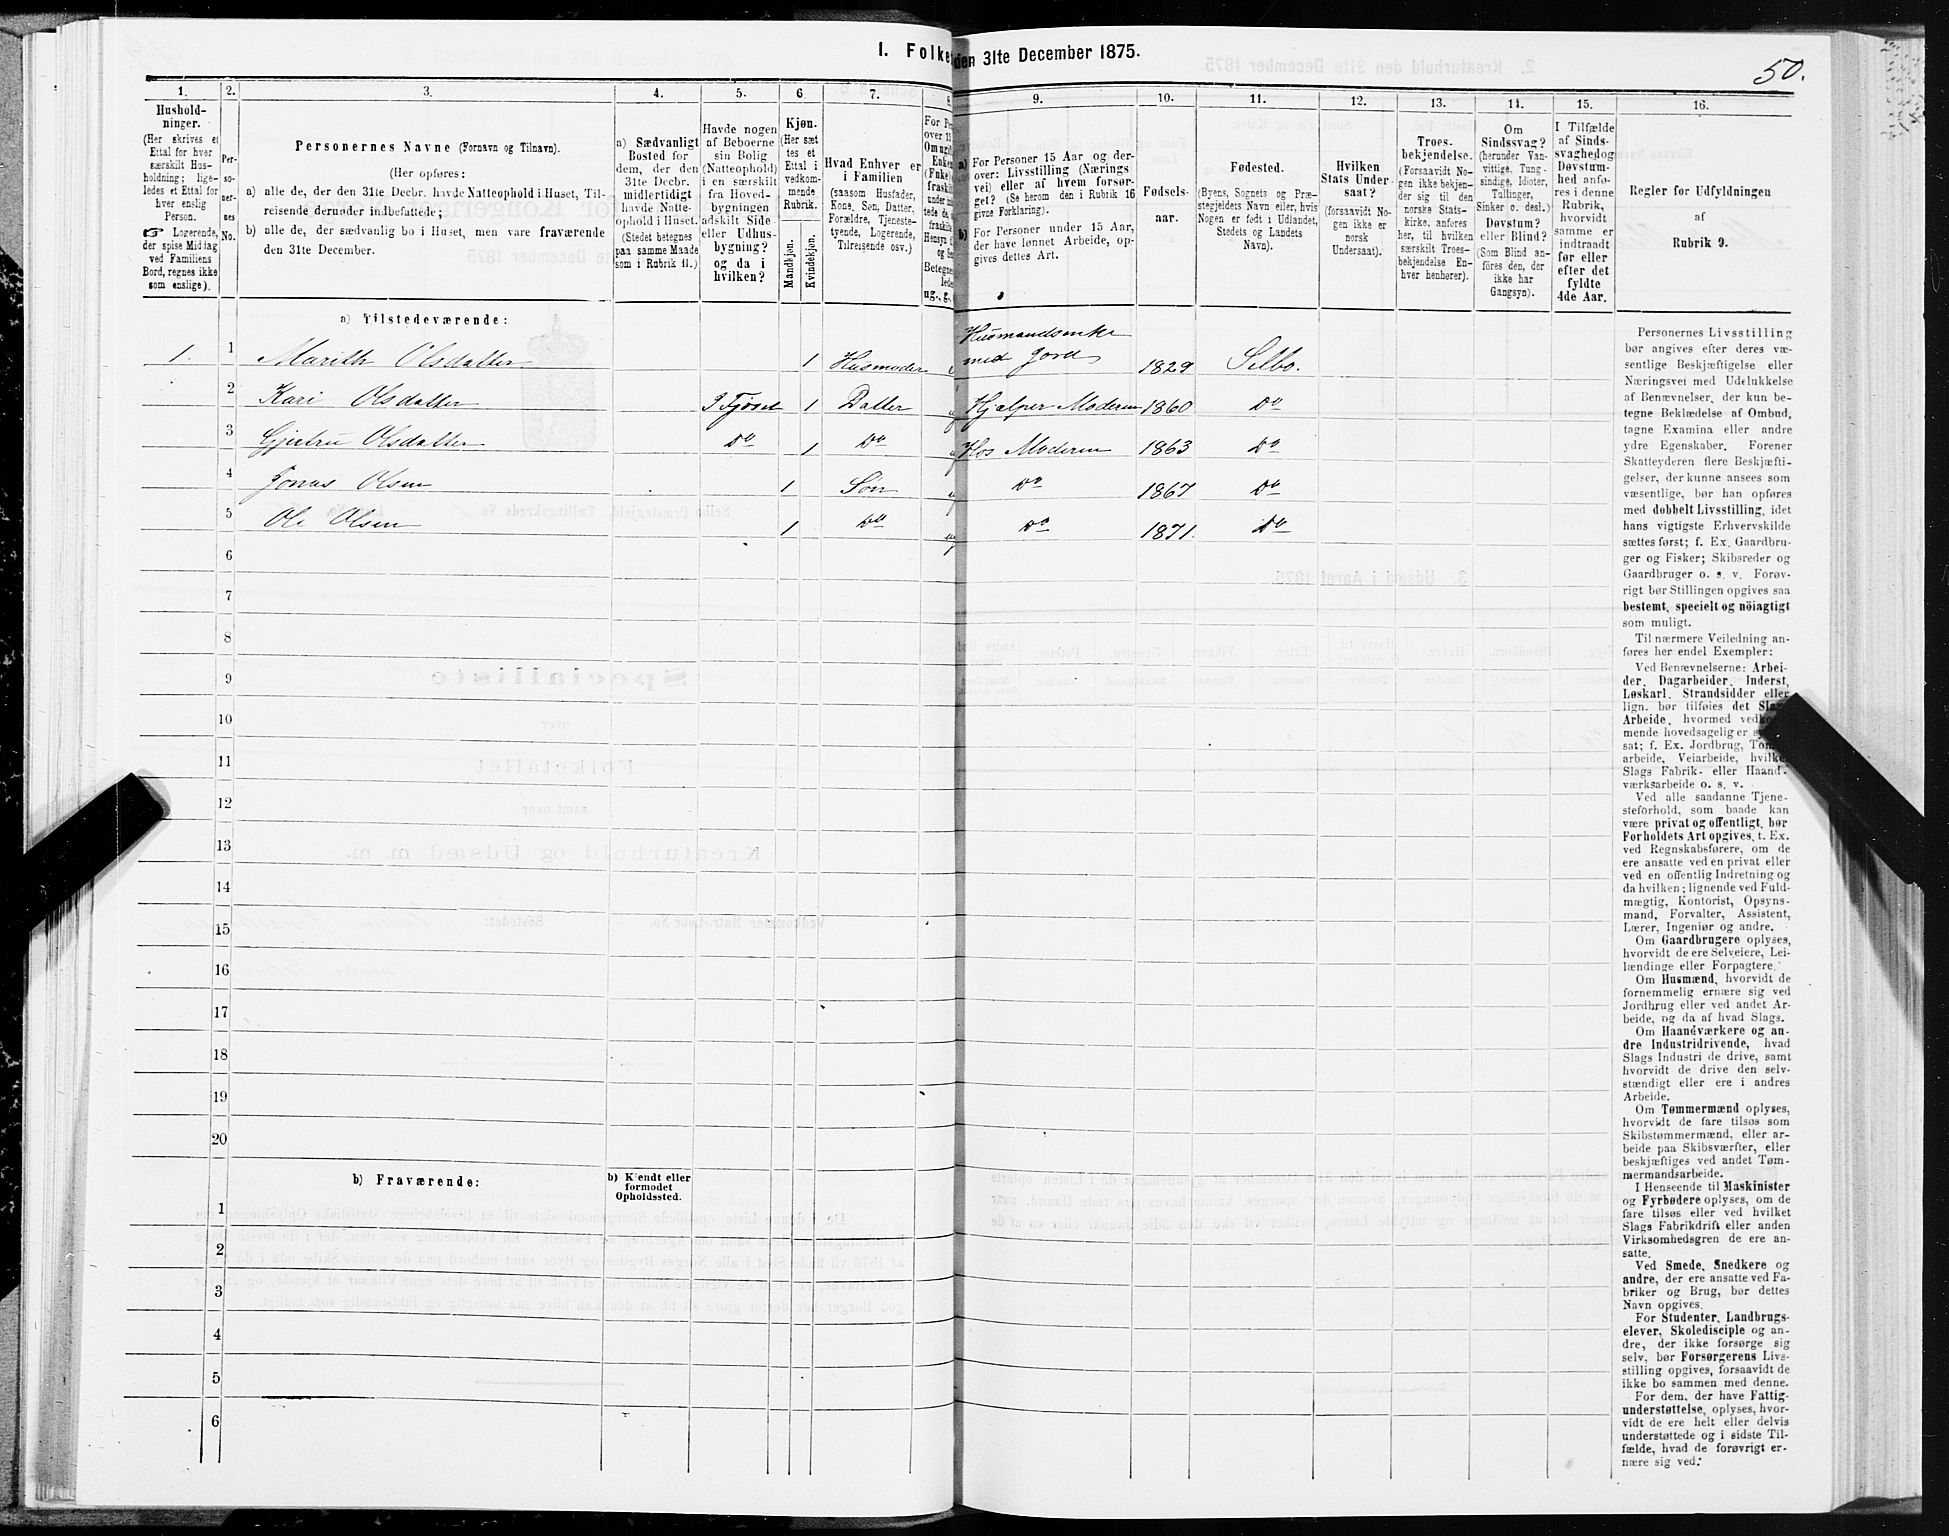 I. Folke
den 31te December 1875.
50.
1. 2. 3. 4. 5. 6. 7. 8. 9. 10. 11. 12. 13. 14. 15. 16.
Hushold-
ninger.
(Her skrives et
Ettal for hver
særskilt Hus-
holdning; lige-
ledes et Ettal for
hver enslig
Person.
☞ Logerende,
der spise Middag
ved Familiens
Bord, regnes ikke
som enslige).
Per-
so-
ner-
nes
No.
Personernes Navne (Fornavn og Tilnavn).
(Her opføres:
a) alle de, der den 31te Decbr. havde Natteophold i Huset, Til-
reisende derunder indbefattede;
b) alle de, der sædvanlig bo i Huset, men vare fraværende
den 31te December.
a) Sædvanligt
Bosted for
dem, der den
31te Decbr.
midlertidigt
havde Natte-
ophold i Huset.
(Stedet betegnes
paa samme Maade
som i Rubrik 11.)
Havde nogen
af Beboerne
sin Bolig
(Natteophold)
i en særskilt
fra Hoved-
bygningen
adskilt Side-
eller Udhus-
bygning?
og da i
hvilken?
Kjøn.
(Her sæt-
tes et
Ettal i
vedkom-
mende
Rubrik.
Mandkjøn.
Kvindekjøn.
Hvad Enhver er
i Familien
(saasom Husfader,
Kone, Søn, Datter,
Forældre, Tjeneste-
tyende, Logerende,
Tilreisende osv.).
a) For Personer 15 Aar og der-
over: Livsstilling (Nærings-
vei) eller af hvem forsør-
get? (Se herom den i Rubrik 16
givne Forklaring).
b) For Personer under 15 Aar,
der have lønnet Arbeide, op-
gives dettes Art.
Fødsels-
aar.
Fødested.
(Byens, Sognets og Præ-
stegjeldets Navn eller, hvis
Nogen er født i Udlandet,
Stedets og Landets
Navn).
Hvilken
Stats Under-
saat?
(forsaavidt No-
gen ikke er
norsk
Undersaat).
Troes-
bekjendelse.
(Forsaavidt No-
gen ikke bekjen-
der sig til den
norske Stats-
kirke, anføres
her, til hvilken
særskilt Troes-
bekjendelse En-
hver henhører).
Om
Sindssvag?
(herunder Van-
vittige, Tung-
sindige, Idioter,
Tullinger,
Sinker o. desl.)
Døvstum?
eller Blind?
(Som Blind an-
føres den, der
ikke har
Gangsyn).
I Tilfælde
af Sinds-
svaghed og
Døvstum-
hed anfø-
res i denne
Rubrik,
hvorvidt
samme er
indtraadt
før eller
efter det
fyldte
4de Aar.
Regler for Udfyldningen
af
Rubrik 9.
a) Tilstedeværende:
1. 1 Marith Olsdatter 1 Husmoder Husmandsenke
med Jord 1829 Selbo.
2 Kari Olsdatter I Fjøset 1 Datter Hjælper Moderen 1860 Do
3 Gjertru Olsdatter Do 1 Do Hos Moderen 1863 Do
4 Jonas Olsen 1 Søn Do 1867 Do
5 Ole Olsen 1 Do Do 1871. Do
6
7
8
9
10
11
12
13
14
15
16
17
18
19
20
b) Fraværende:
b) Kjendt eller
formodet
Opholdssted.
1
2
3
4
5
6
Personernes Livsstilling
bør angives efter deres væ-
sentlige Beskjæftigelse eller
Næringsvei med Udelukkelse
af Benævnelser, der kun be-
tegne Beklædelse af Ombud,
tagne Examina eller andre
ydre Egenskaber. Forener
Skatteyderen flere Beskjæfti-
gelser, der kunne ansees som
væsentlige, bør han opføres
med dobbelt Livsstilling, idet
hans vigtigste Erhvervskilde
sættes først; f. Ex. Gaardbru-
ger og Fisker; Skibsreder og
Gaardbruger o. s. v. Forøv-
rigt bør Stillingen opgives saa
bestemt, specielt og nöiagtigt
som muligt.
Til nærmere Veiledning an-
føres her endel Exempler:
Ved Benævnelserne: Arbei-
der, Dagarbeider, Inderst,
Løskarl, Strandsidder eller
lign. bør tilføies det Slags
Arbeide, hvormed vedkom-
mende hovedsagelig er
sat; f. Ex. Jordbrug,
arbeide, Veiarbeide, hvilket
Slags Fabrik- eller Haand-
værksarbeide o. s. v.
Ved alle saadanne Tjene-
steforhold, som baade kan
være privat og offentligt, bør
Forholdets Art opgives, t. Ex.
ved Regnskabsførere, om de
ere ansatte ved en privat eller
ved en offentlig Indretning og
da hvilken; lignende ved Fuld-
mægtig, Kontorist, Opsyns-
mand, Forvalter, Assistent,
Lærer, Ingeniør og andre.
Om Gaardbrugere oplyses,
hvorvidt de ere Selveiere, Lei-
lændinge eller Forpagtere.
Om Husmænd, hvorvidt de
fornemmelig ernære sig ved
Jordbrug eller ved andet Ar-
beide, og da af hvad Slags.
Om Haandværkere og an-
dre Industridrivende, hvad
Slags Industri de drive, samt
hvorvidt de drive den selv-
stændigt eller ere i andres
Arbeide.
Om Tømmermænd oplyses,
hvorvidt de fare tilsøs som
Skibstømmermænd, eller ar-
beide paa Skibsværfter, eller
beskjæftiges ved andet Tøm-
mermandsarbeide.
I Henseende til Maskinister
og Fyrbødere oplyses, om de
fare tilsøs eller ved hvilket
Slags Fabrikdrift eller anden
Virksomhedsgren de ere an-
satte.
Ved Smede, Snedkere og
andre, der ere ansatte ved Fa-
briker og Brug, bør dettes
Navn opgives.
For Studenter, Landbrugs-
elever, Skoledisciple og an-
dre, der ikke forsørge sig
selv, bør Forsørgerens Livs-
stilling opgives, forsaavidt de
ikke bo sammen med denne.
For dem, der have Fattig-
understøttelse, oplyses, hvor-
vidt de ere helt eller delvis
understøttede og i sidste Til-
fælde, hvad de forøvrigt er-
nære sig ved.